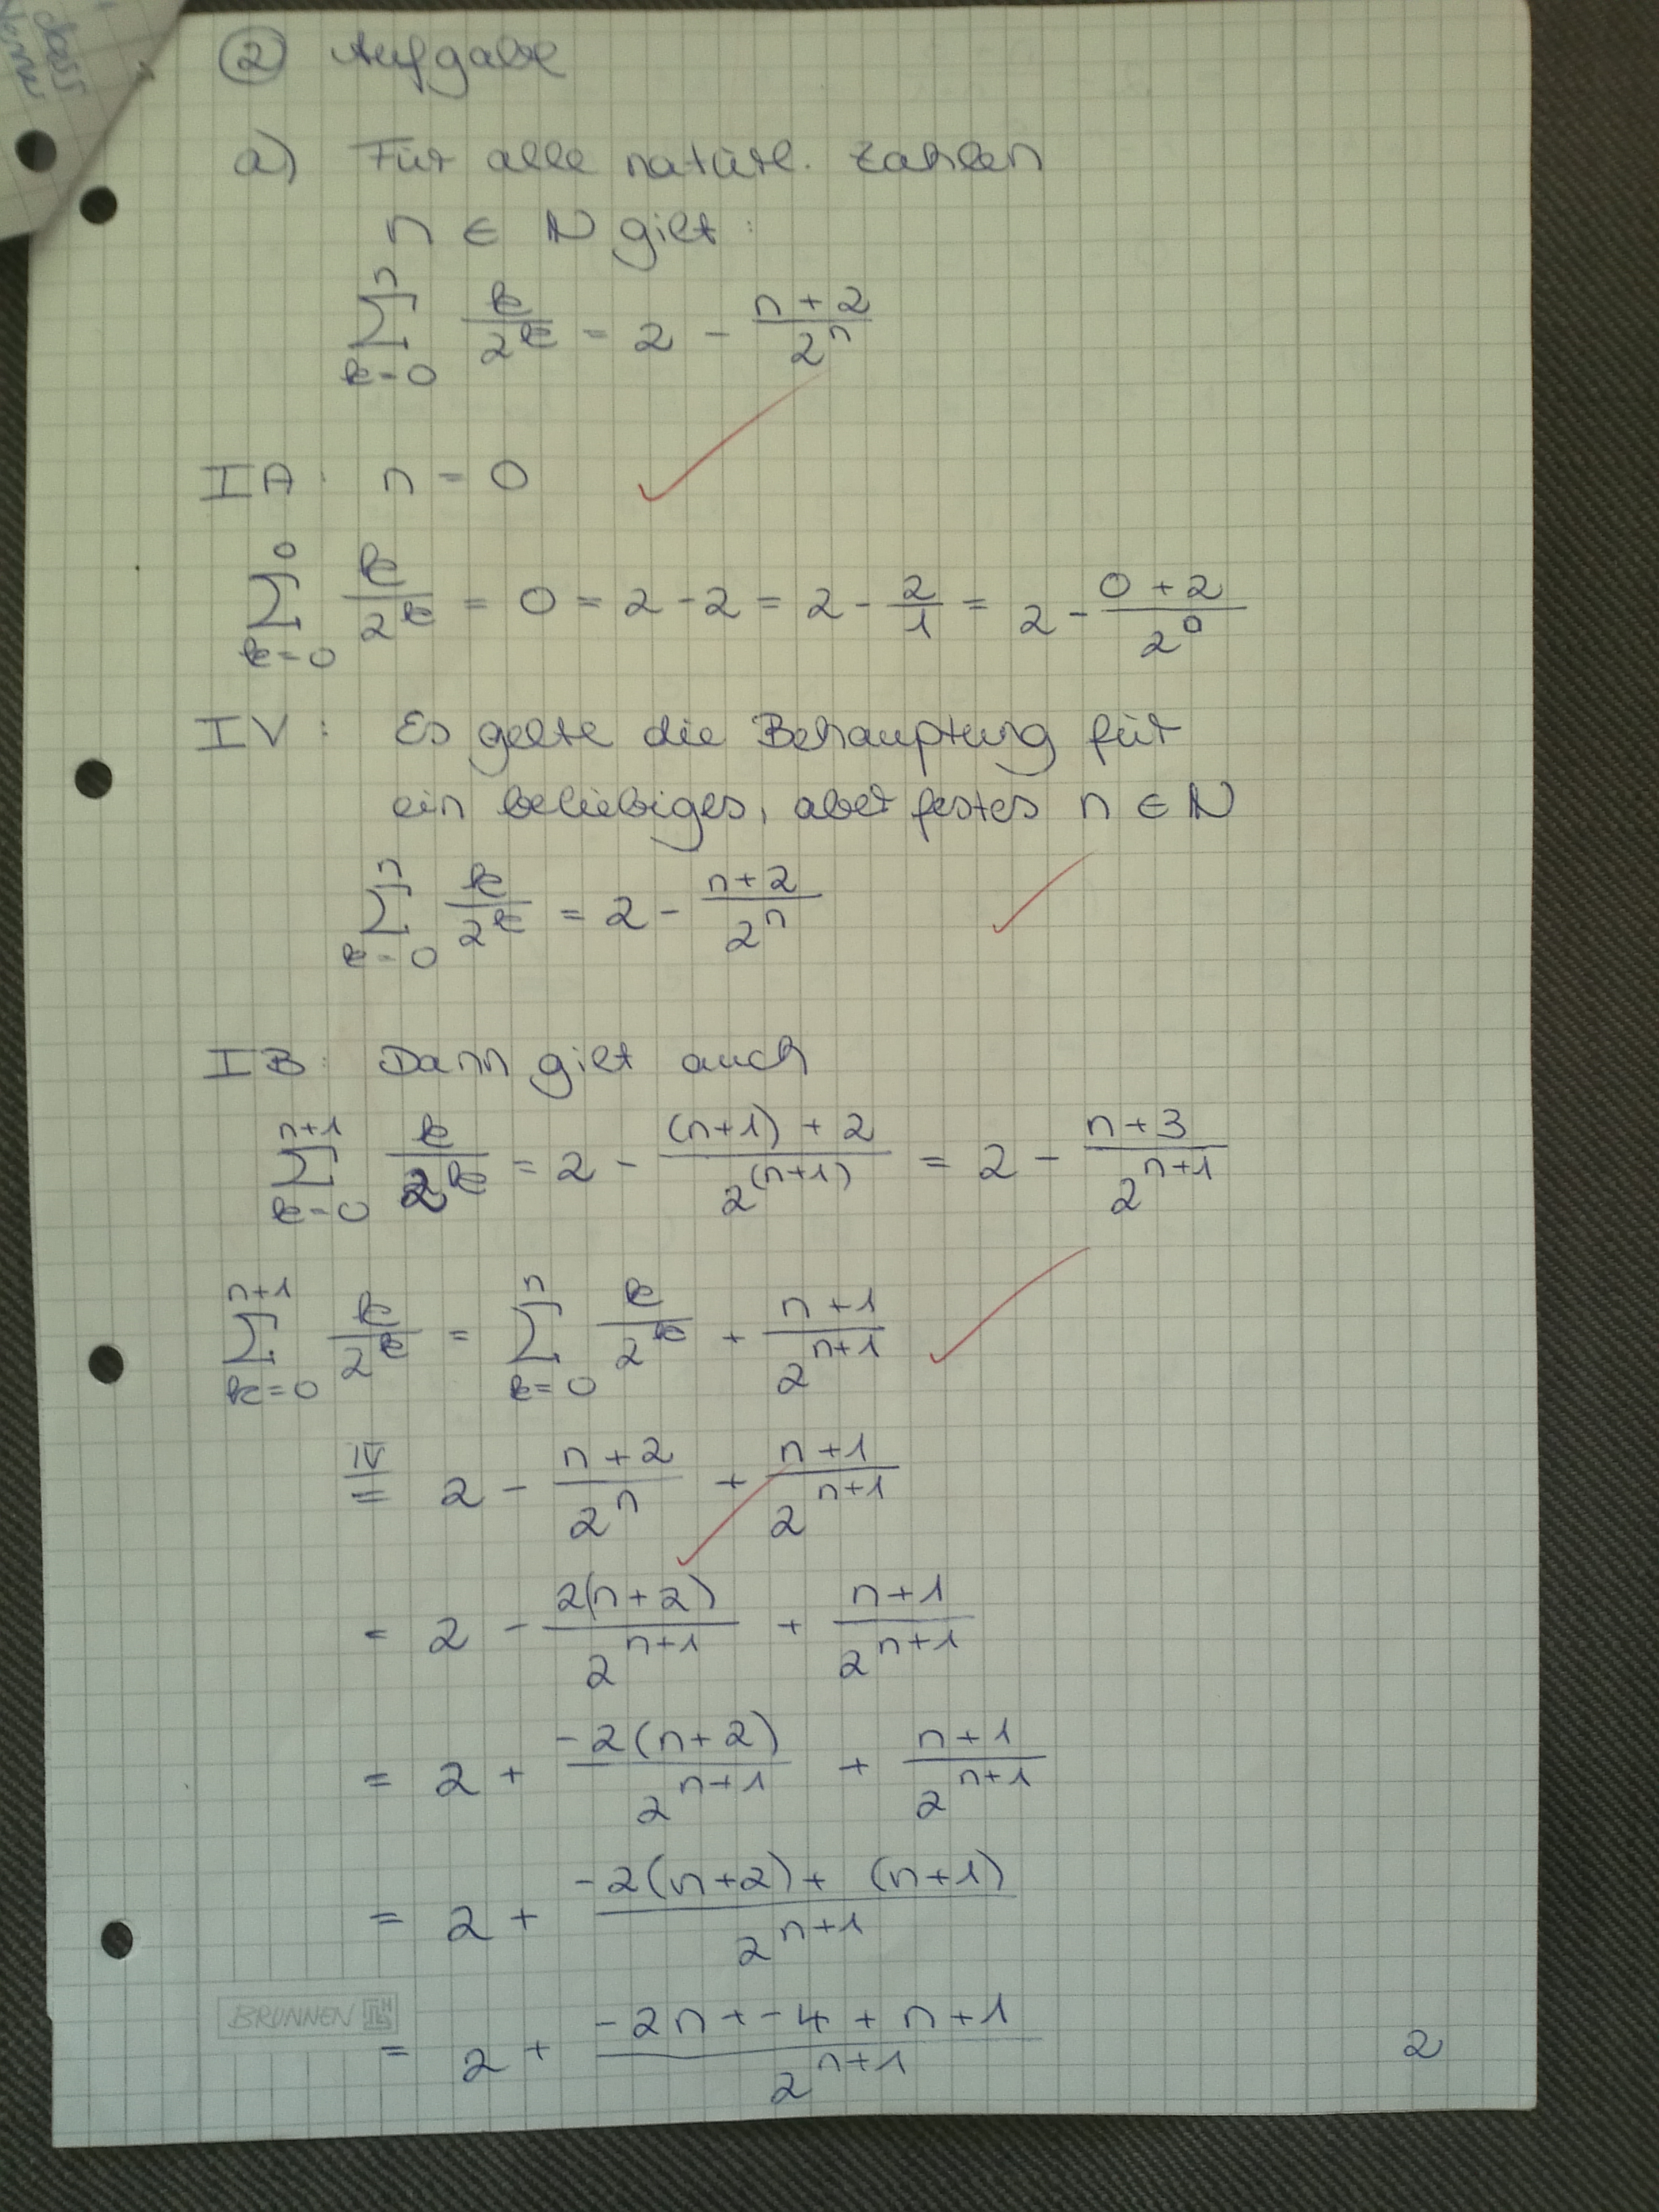 ② Aufgabe
a) Für alle natürl. Zahlen
n ∈ ℕ gilt:
∑_{k=0}^{n} k/2^k = 2 - (n+2)/2^n
IA: n = 0
∑_{k=0}^{0} k/2^k = 0 = 2-2 = 2 - 2/1 = 2 - (0+2)/2^0
IV: Es gelte die Behauptung für
ein beliebiges, aber festes n ∈ ℕ
∑_{k=0}^{n} k/2^k = 2 - (n+2)/2^n
IB: Dann gilt auch
∑_{k=0}^{n+1} k/2^k = 2 - ((n+1)+2)/2^(n+1) = 2 - (n+3)/2^{n+1}
∑_{k=0}^{n+1} k/2^k = ∑_{k=0}^{n} k/2^k + (n+1)/2^{n+1}
IV= 2 - (n+2)/2^n + (n+1)/2^{n+1}
= 2 - 2(n+2)/2^{n+1} + (n+1)/2^{n+1}
= 2 + -2(n+2)/2^{n+1} + (n+1)/2^{n+1}
= 2 + (-2(n+2) + (n+1))/2^{n+1}
= 2 + (-2n + -4 + n+1)/2^{n+1}
BRUNNEN
2